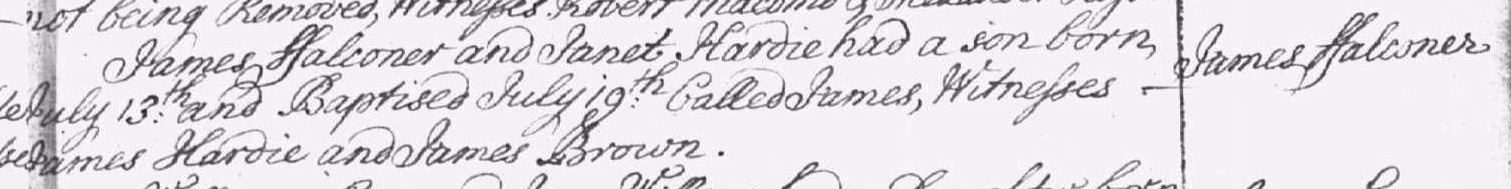 not being Removed, Witnesses Robert
James ffalconer and Janet Hardie had a son born
July 13.th and Baptised July 19.th Called James, Witnesses
James Hardie and James Brown.
James ffalconer